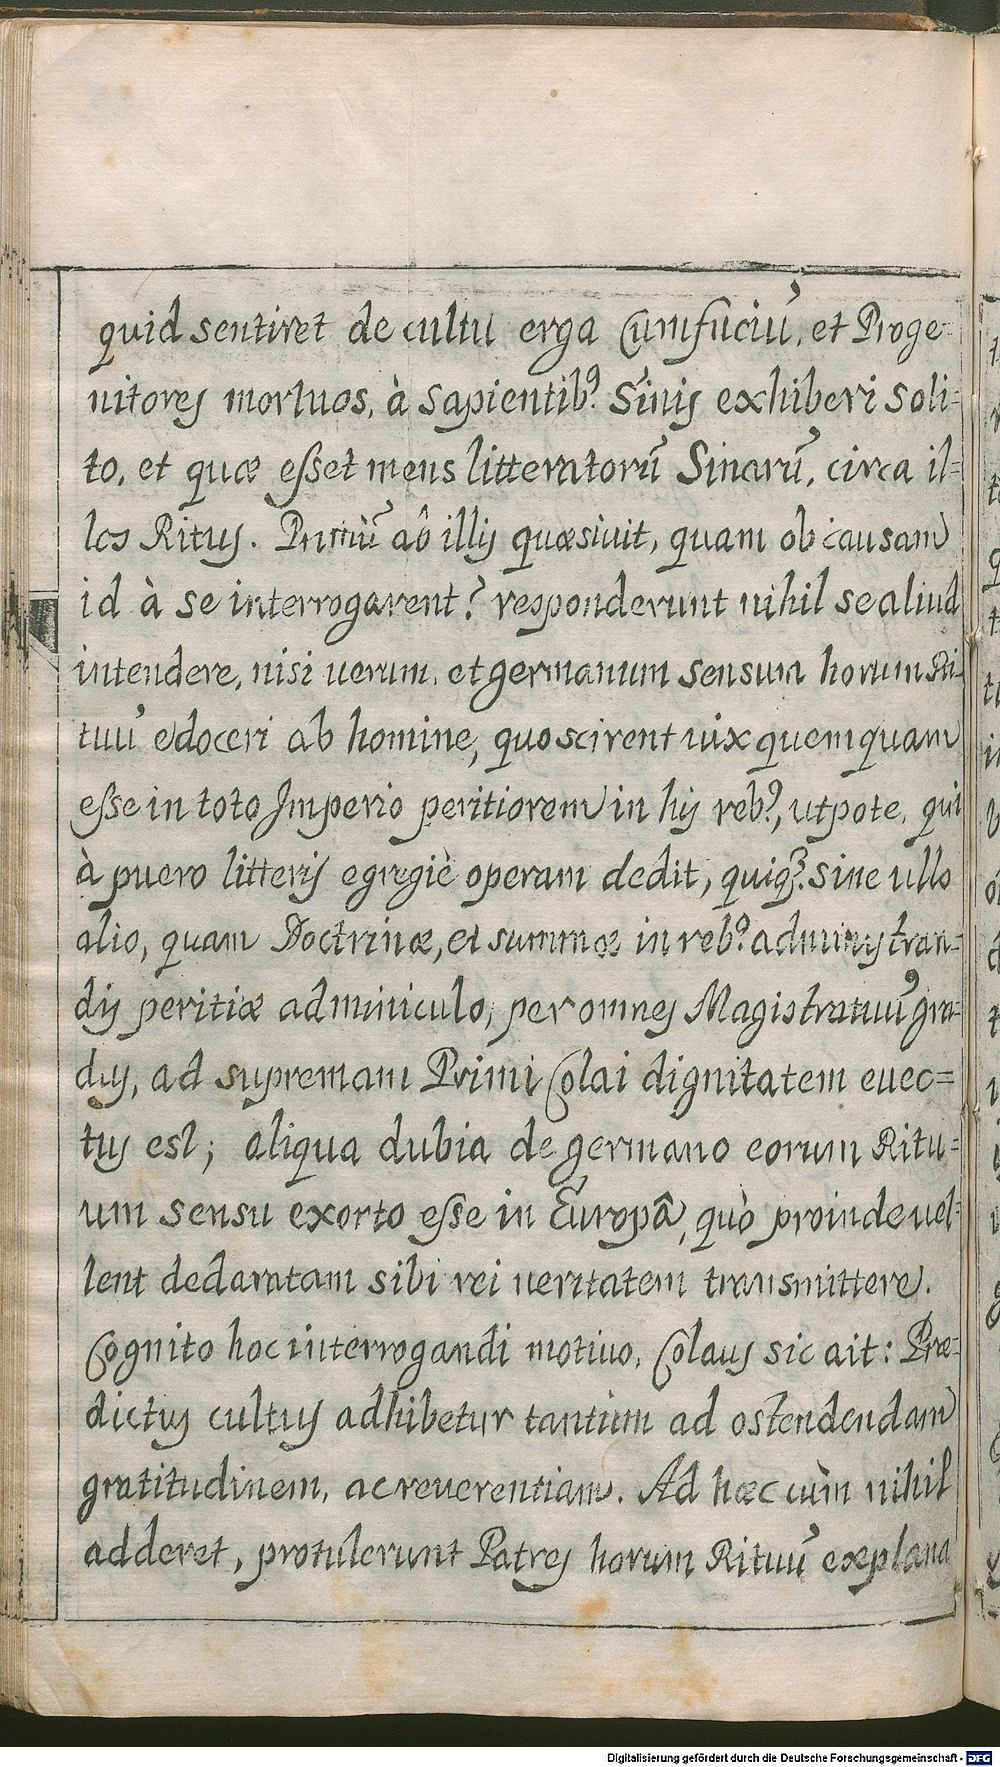 quid sentiret de cultu erga Cumfuciū, et Proge-
nitores mortuos, à sapientib⁹ Sinis exhiberi soli-
to, et quæ esset mens litteratorū Sinarū, circa il-
los Ritus. Primū ab illis quæsiuit, quam ob causam
id à se interrogarent? responderunt nihil se aliud
intendere, nisi uerum, et germanum sensum horum Ri-
tuū edoceri ab homine, quo scirent uix quemquam
esse in toto Imperio peritiorem in his reb⁹, utpote, qui
à puero litteris egregiè operam dedit, quiq; sine ullo
alio, quam Doctrinæ, et summæ in reb⁹ adminystran-
dis peritiæ adminiculo, per omnes Magistratuū gra-
dus, ad supremam Primi Colai dignitatem euec=
tus est; aliqua dubia de germano eorum Ritu-
um sensu exorto esse in Europâ, quò proinde uel-
lent declaratam sibi rei ueritatem transmittere.
Cognito hoc interrogandi motiuo, Colaus sic ait: Præ-
dictus cultus adhibetur tantùm ad ostendendam
gratitudinem, ac reuerentiam. Ad hæc cùm nihil
adderet, protulerunt Patres horum Rituū explana
Digitalisierung gefördert durch die Deutsche Forschungsgemeinschaft - DFG